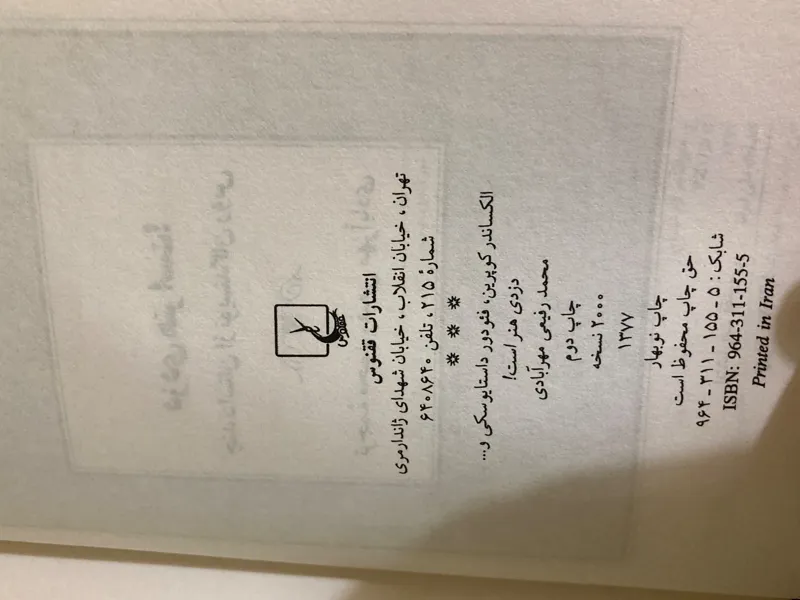 ققنوس
انتشارات ققنوس
تهران، خیابان انقلاب، خیابان شهدای ژاندارمری
شمارهٔ ۲۱۵، تلفن ۶۴۰۸۶۴۰
* * *
الکساندر کوپرین، فئودور داستایوسکی و...
دزدی هنر است!
محمد رفیعی مهرآبادی
چاپ دوم
۲۰۰۰ نسخه
۱۳۷۷
چاپ نوبهار
حق چاپ محفوظ است
شابک: ۵ - ۱۵۵ - ۳۱۱ - ۹۶۴
ISBN: 964-311-155-5
Printed in Iran